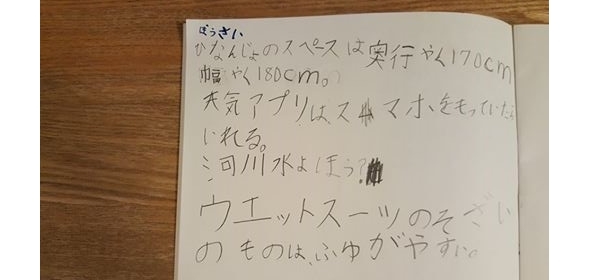 ぼうさい
ひなんじょのスペースは奥行やく170cm
幅やく180cm。
天気アプリは、スマホをもっていたら
いれる。
河川水よほう?
ウエットスーツのそざい
のものは、ふゆがやすい。